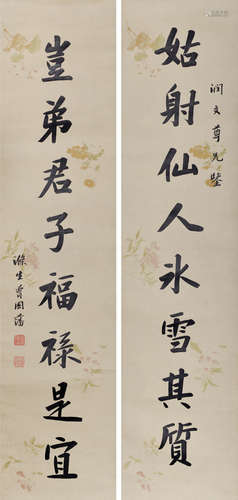 姑射仙人冰雪其質
潤文尊兄鑒
豈弟君子福祿是宜
滌生曾國藩